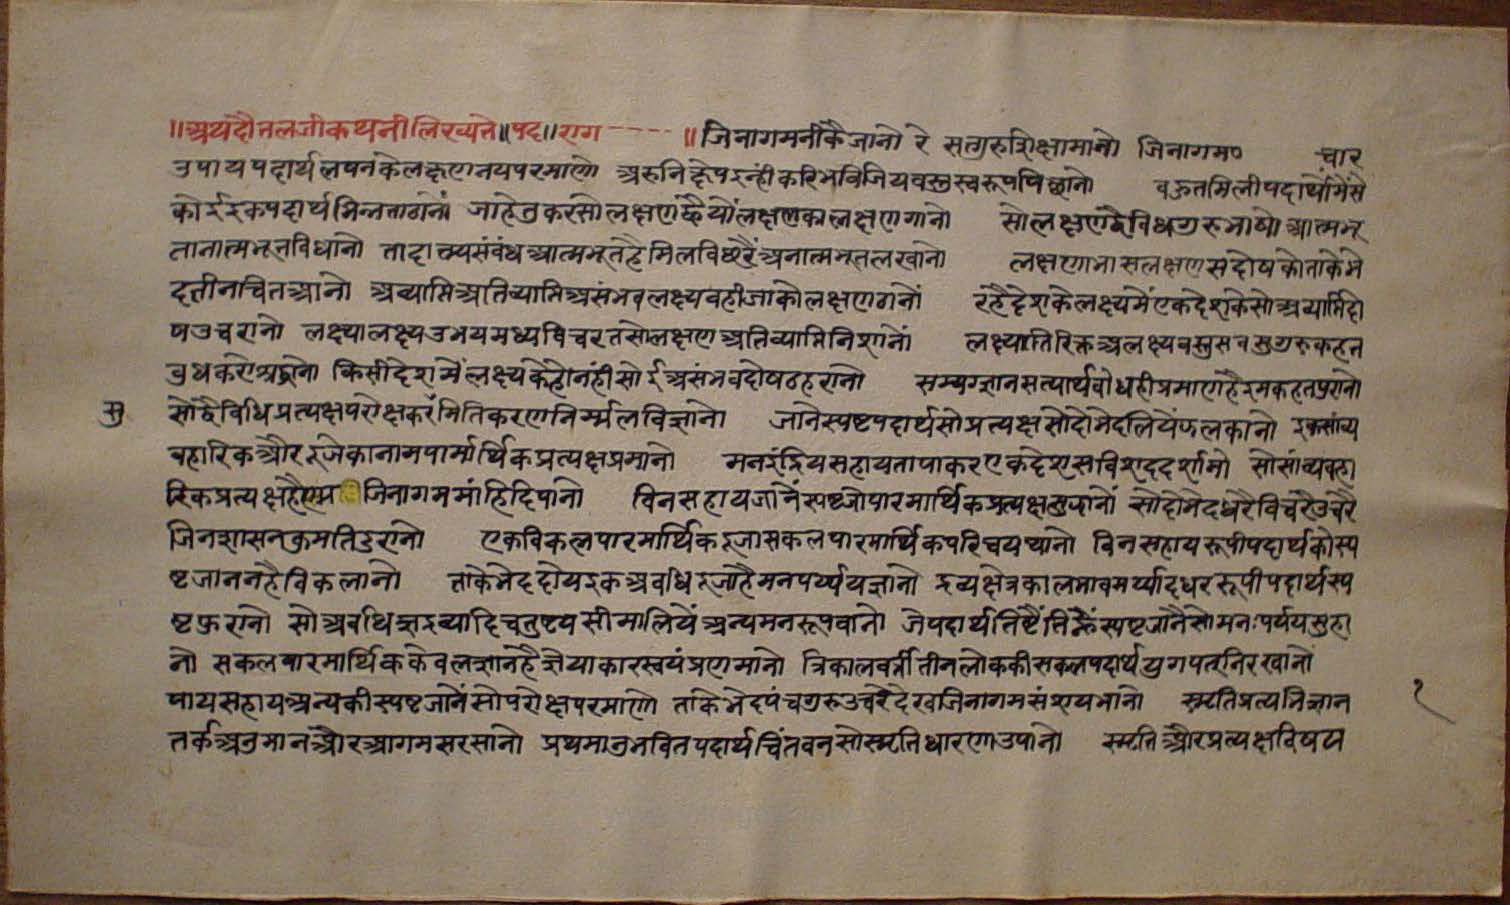 ॥अथ दौलतजी कथनी लिख्यते॥पद॥राग ---- ॥जिनागम नीकै जानो रे सतगुरु शिक्षा मानो जिनागम० चार
उपाय पदार्थ लषन के लक्षण नय परमाणो अरु निक्षेप इन्हीं करि भवि जिय वस्तु स्वरूप पिछानो बहुत मिली पदार्थों मैं सें
कोई इक पदार्थ भिन्नता ठानों जा हेतु कर सो लक्षण है यों लक्षण का लक्षण गानो सो लक्षण द्वैविध गुरु भाषो आत्मभू
तानात्मभूत विधानो तादात्म्य संबंध आत्मभूत है मिल विछुरैं अनात्मभूत लखानो लक्षणाभास लक्षण सदोष को ताके भे
द तीन चित आनो अव्याप्ति अतिव्याप्ति असंभव लक्ष्य वही जाको लक्षण ठानों रहै देश के लक्ष्य में एक देश के सो अव्याप्ति दो
ष उचरानो लक्ष्यालक्ष्य उभय मध्य विचरत सो लक्षण अतिव्याप्ति निशानों लक्ष्यातिरिक्त अलक्ष्य वस्तु सब सुगुरु कहन
बुध करो श्रद्धानो किसी देश मैं लक्ष्य के हो नंही सोई असंभव दोष ठहरानो सम्यग्ज्ञान सत्यार्थ बोध ही प्रमाण है इम कहत पुरानो
सु सो द्वैविधि प्रत्यक्ष परोक्ष कर मिति करण निर्म्मल विज्ञानो जाने स्पष्ट पदार्थ सो प्रत्यक्ष सो दो भेद लियें फलकानो इक सांव्य
वहारिक और दूजे का नाम पार्मार्थिक प्रत्यक्ष प्रमानो मन इंद्रिय सहायता पाकर एक देश सविशद दर्शानो सो सांव्यवहा
रिक प्रत्यक्ष है जिनागम मांहि दिपानो विन सहाय जानें स्पष्ट जो पारमार्थिक प्रत्यक्ष सुज्ञानों सो दो भेद धरै विचरै उचरै
जिनशासन कुमति दुरानो एक विकल पारमार्थिक दूजा सकल पारमार्थिक परिचय ठानो विन सहाय रूपी पदार्थ को स्प
ष्ट जानन है विकलानो ताके भेद दोय इक अवधि दूजा है मनपर्य्यय ज्ञानो द्रव्य क्षेत्र काल भाव मर्य्याद धर रूपी पदार्थ स्प
ष्ट फुरानो सो अवधि द्रव्यादि चतुष्टय सीमा लियें अन्य मन रूपवानो जे पदार्थ तिष्टैं तिन्हैं स्पष्ट जानै सो मनःपर्यय सुहा
नो सकल पारमार्थिक केवलज्ञान है ज्ञेयाकार स्वयं प्रणमानो त्रिकालवर्ती तीन लोक की सकल पदार्थ युगपत् निरखानों
पाय सहाय अन्य की स्पष्ट जानें सो परोक्ष परमाणो ताके भेद पंच गुरु उच्चरे देख जिनागम संशय भानो स्मृति प्रत्यभिज्ञान
तर्क अनुमान और आगम सरसानो प्रथमानुभवित पदार्थ चिंतवन सो स्मृति धारणा उपानो स्मृति और प्रत्यक्ष विषय
१